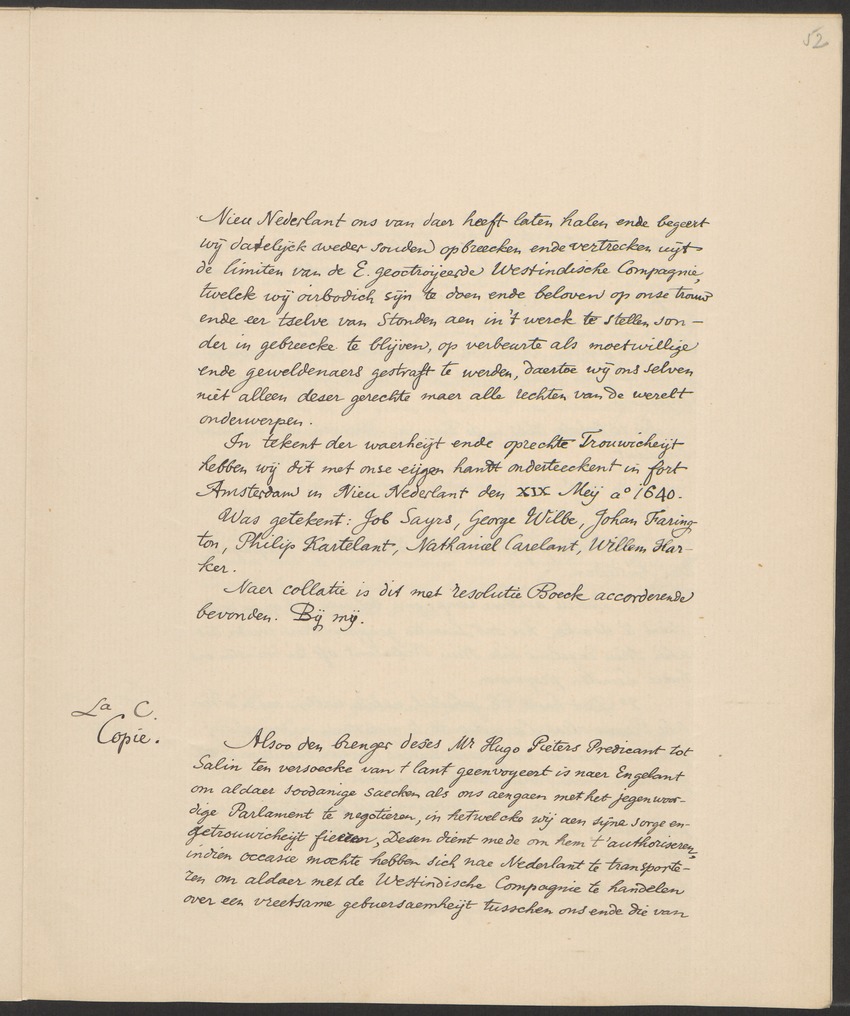 52
Nieu Nederlant ons van daer heeft laten halen ende begeert
wij datelijck weder souden opbreecken ende vertrecken uijt
de limiten van de E. geoctroijeerde Westindische Compagnie,
twelck wij oirbodich sijn te doen ende beloven op onse trouw
ende eer tselve van Stonden aen in't werck te stellen son-
der in gebreecke te blijven, op verbeurte als moetwillige
ende geweldenaers gestraft te werden, daertoe wij ons selven
niet alleen deser gerechte maer alle rechten van de werelt
onderwerpen.
In tekent der waerheijt ende oprechte Trouwicheijt
hebben wij dit met onse eijgen handt onderteeckent in fort
Amsterdam in Nieu Nederlant den XIX Meij aº 1640.
Was getekent: Job Sayrs, George Wilbe, Johan Faring-
ton, Philip Kartelant, Nathaniel Carelant, Willem Har-
ker.
Naer collatie is dit met resolutie Boeck accorderende
bevonden. Bij mij.
La C.
Copie.
Alsoo den brenger deses Mr Hugo Pieters Predicant tot
Salin ten versoecke van t lant geenvoyeert is naer Engelant
om aldaer soodanige saecken als ons aengaen met het jegenwoor-
dige Parlament te negotieren, in hetwelcke wij aen sijne sorge en-
getrouwicheijt fieeren, Desen dient mede om hem t'authoriseren,
indien occasie mochte hebben sich nae Nederlant te transporte-
ren om aldaer met de Westindische Compagnie te handelen
over een vreetsame gebuersaemheijt tusschen ons ende die van